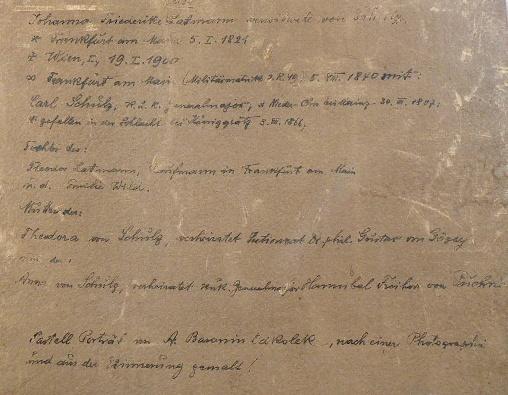 Johanna Friederike Latmann verwitwete von Schulz
* Frankfurt am Main 5. I. 1821
† Wien, I, 19. I. 1900
∞ Frankfurt am Main 1840 mit:
Carl Schulz, k. u. k. Generalmajor, 30. III. 1807;
† gefallen in der Schlacht bei Königgrätz 3. VII. 1866.
Tochter des:
Theodor Latmann, Kaufmann in Frankfurt am Main
u. d. Emilie Wild.
Mutter der:
Theodora von Schulz, verheiratet Dr. phil. Gustav von
und der:
Anna von Schulz, verheiratet k. u. k. Generalmajor Hannibal Freiherr von Puchner
Pastell Porträt von A. Baronin Odkolek, nach einer Photographie
und aus der Erinnerung gemalt!